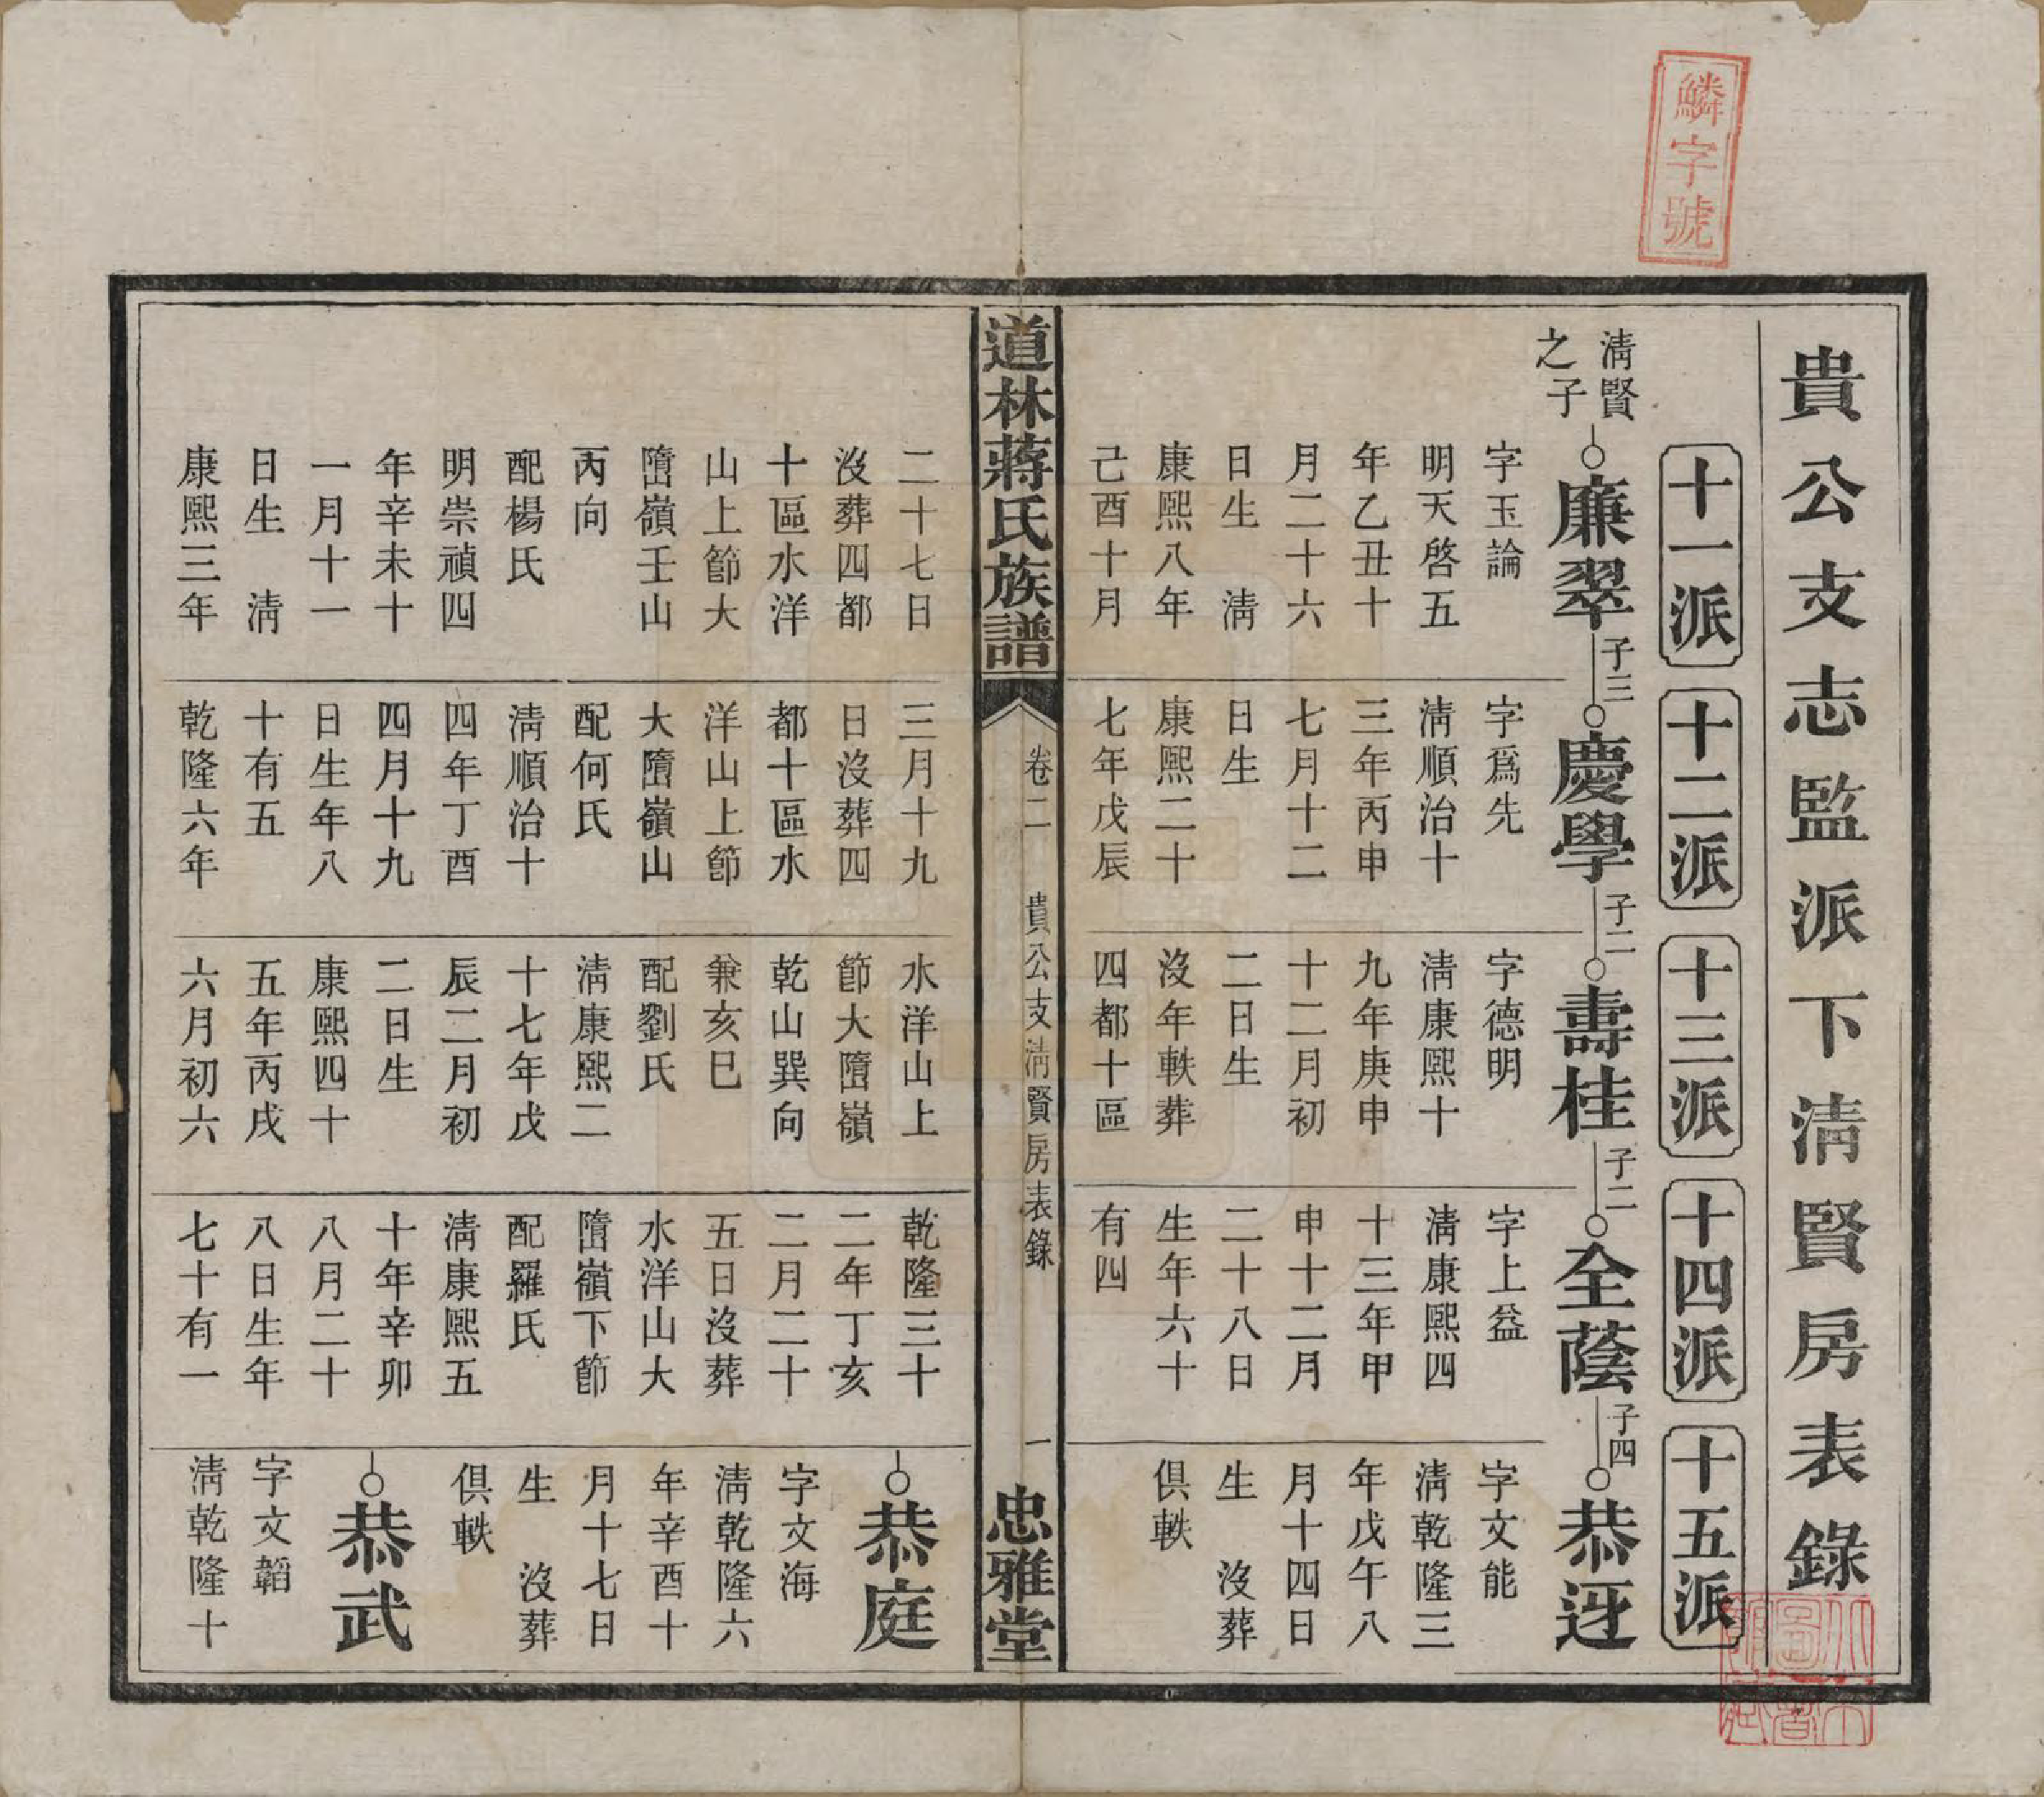 鱗字號
貴公支志監派下淸賢房表錄
十一派
十二派
十三派
十四派
十五派
淸賢
之子
廉翠
子三
慶學
子二
壽桂
子二
全蔭
子四
恭迓
字玉論
明天啓五
年乙丑十
月二十六
日生 淸
康熙八年
己酉十月
字爲先
淸順治十
三年丙申
七月十二
日生
康熙二十
七年戊辰
字德明
淸康熙十
九年庚申
十二月初
二日生
沒年軼葬
四都十區
字上益
淸康熙四
十三年甲
申十二月
二十八日
生年六十
有四
字文能
淸乾隆三
年戊午八
月十四日
生 沒葬
俱軼
道林蔣氏族譜
卷二
貴公支淸賢房表錄
一
忠雅堂
二十七日
沒葬四都
十區水洋
山上節大
墮嶺壬山
丙向
配楊氏
明崇禎四
年辛未十
一月十一
日生 淸
康熙三年
三月十九
日沒葬四
都十區水
洋山上節
大墮嶺山
配何氏
淸順治十
四年丁酉
四月十九
日生年八
十有五
乾隆六年
水洋山上
節大墮嶺
乾山巽向
兼亥巳
配劉氏
淸康熙二
十七年戊
辰二月初
二日生
康熙四十
五年丙戌
六月初六
乾隆三十
二年丁亥
二月二十
五日沒葬
水洋山大
墮嶺下節
配羅氏
淸康熙五
十年辛卯
八月二十
八日生年
七十有一
恭庭
字文海
淸乾隆六
年辛酉十
月十七日
生 沒葬
俱軼
恭武
字文韜
淸乾隆十